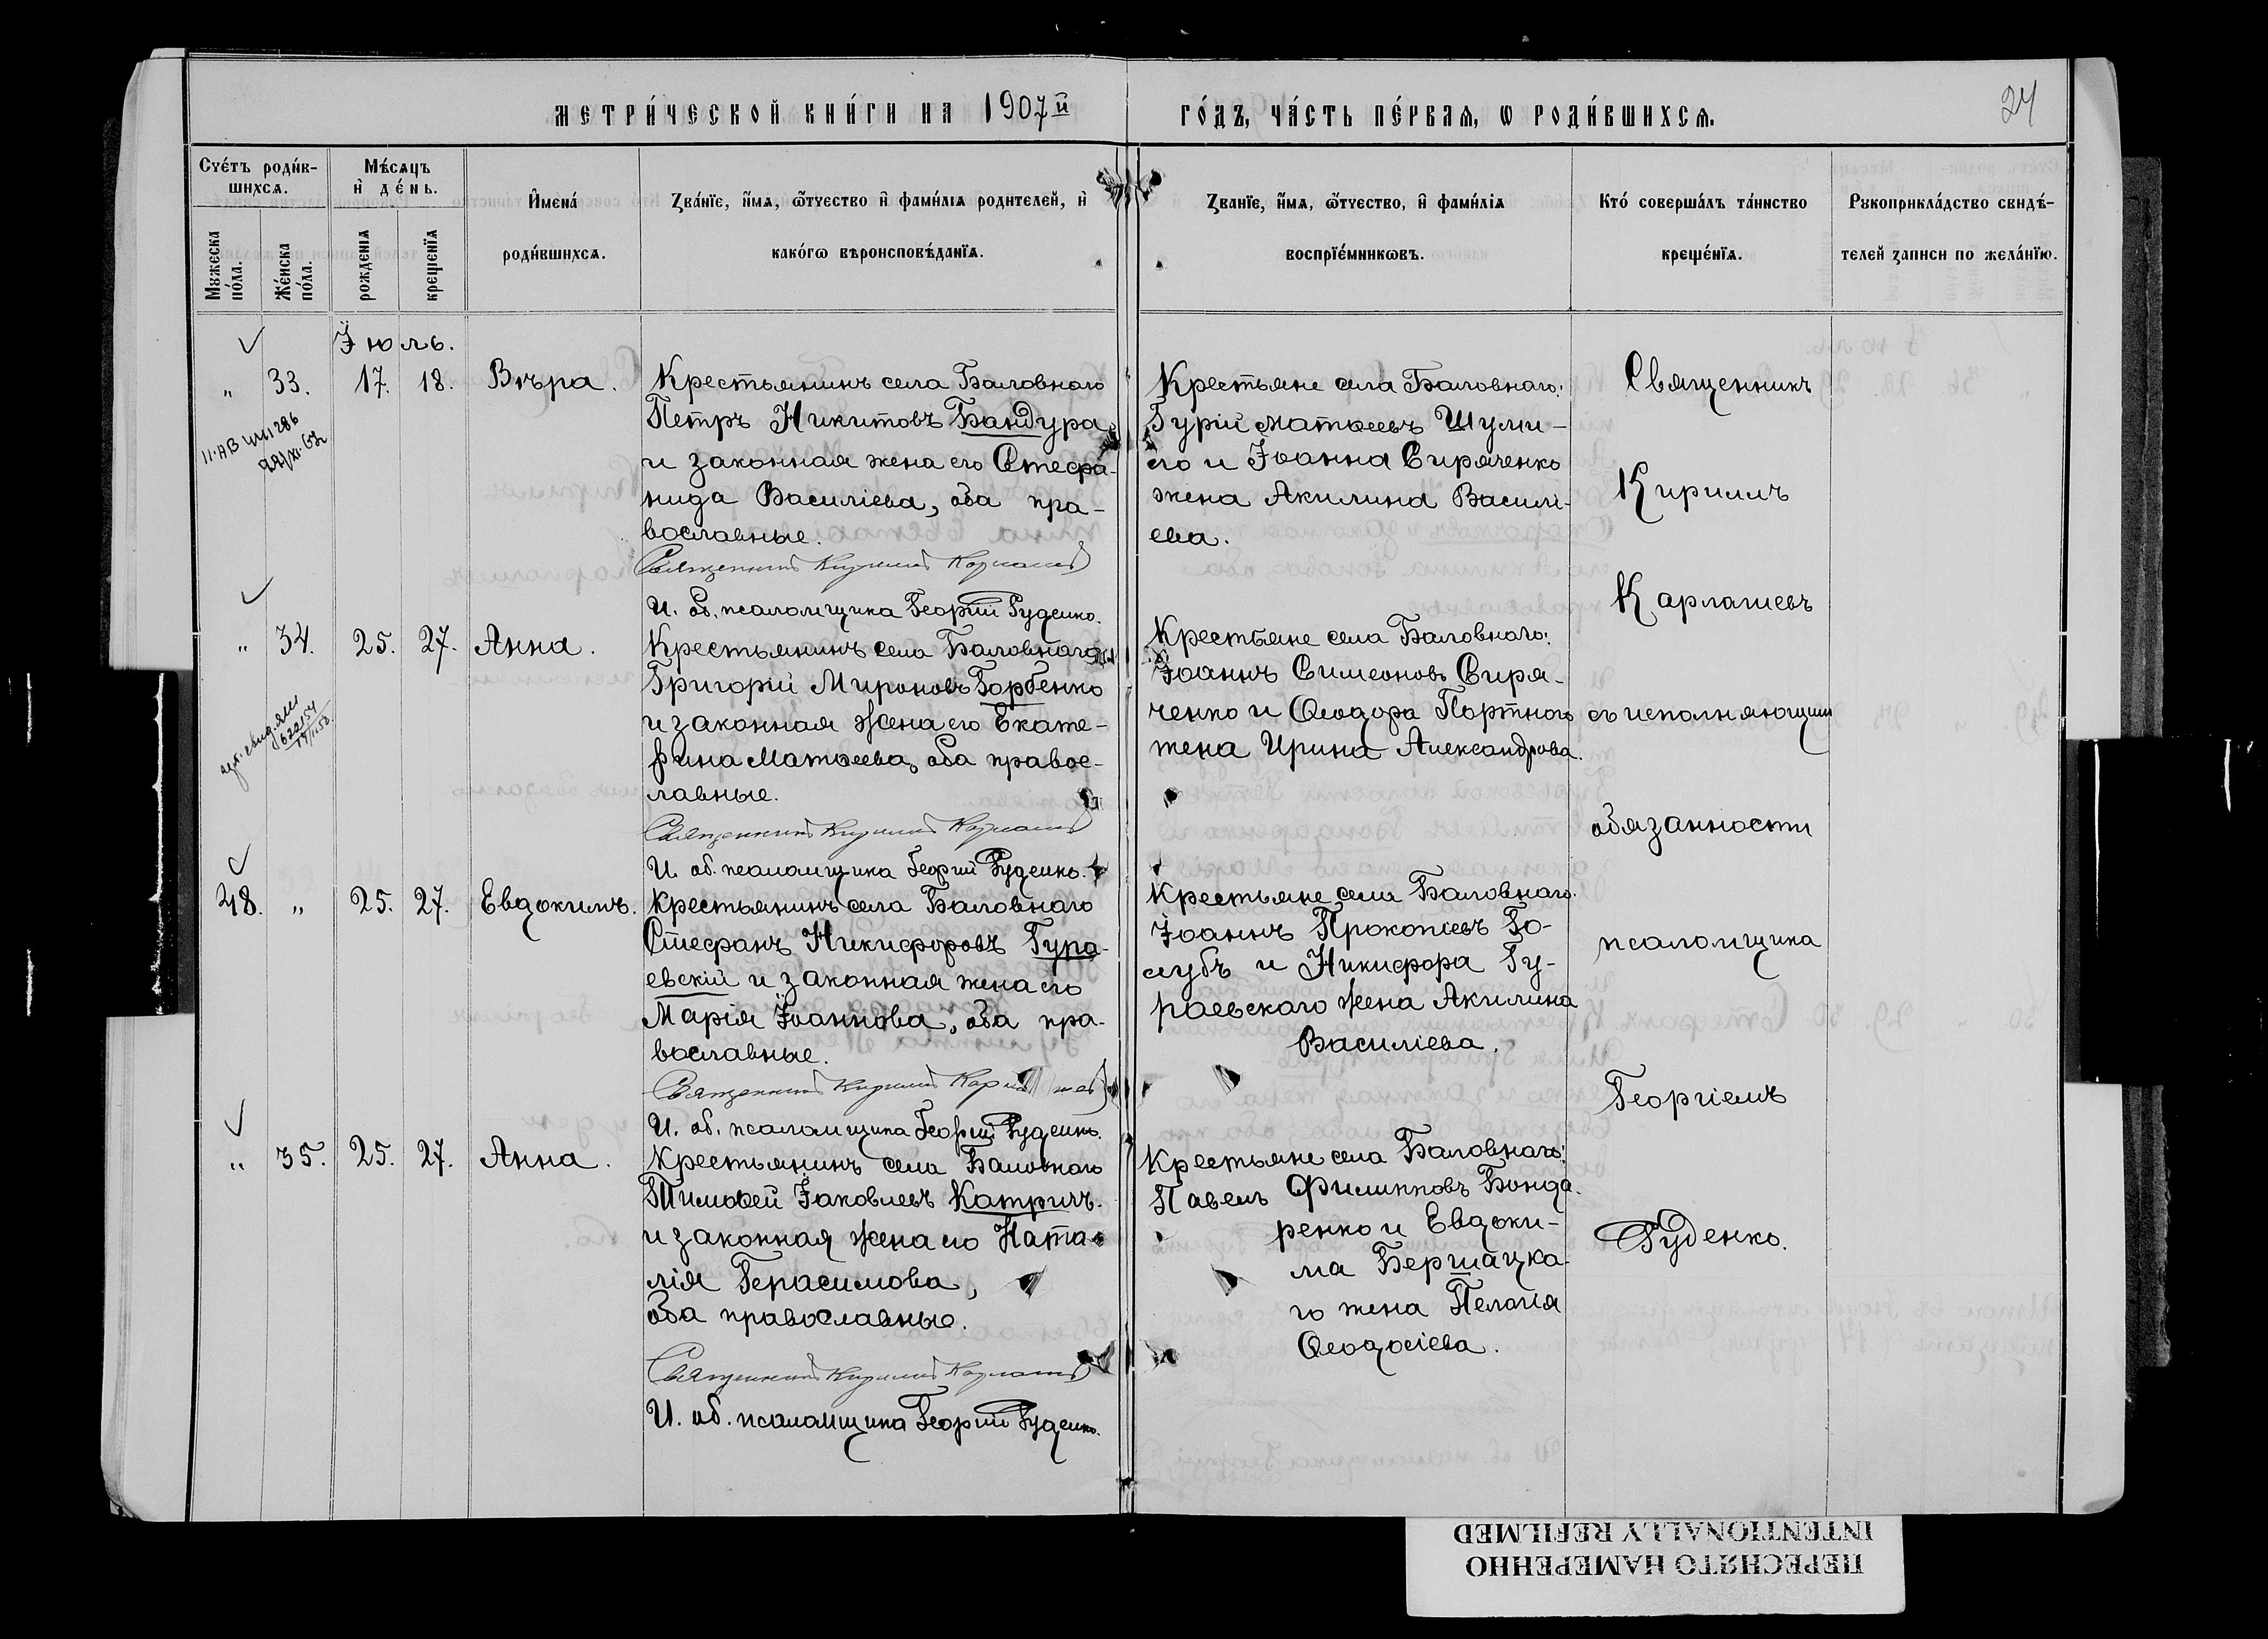 МЕТРИ́ЧЕСКОЙ КНИ́ГИ НА 1907й ГО́ДЪ, ЧА́СТЬ ПЕ́РВАЯ, Ѡ РОДИ́ВШИХСЯ.
24
Сче́тъ роди́в-
шихся.
Мѣ́сяцъ
и҆ де́нь.
Мꙋжеска
по́ла.
Же́нска
по́ла.
рожденїѧ
крещенїѧ
И҆мена́
роди́вшихсѧ.
Зва́нїе, и҆́мѧ, ѻ҆́тчество и҆ фами́лїѧ родителей, и҆
како́гѡ вѣроисповѣ́данїѧ.
Званїе, и҆́мѧ, ѻ҆́тчество, и҆ фами́лїѧ
воспрїе́мниковъ.
Кто́ соверша́лъ та́инство
креще́нїѧ.
Рꙋкоприкла́дство свидѣ́-
телей записи по жела́нїю.
Іюль.
" 33. 17. 18. Вѣра.
Крестьянинъ села Баловнаго
Петръ Никитовъ Бандура
и законная жена его Стефа-
нида Василіева, оба пра-
вославные.
Священникъ Кириллъ Карлашевъ
И. об. псаломщика Георгій Руденко.
Крестьяне села Баловнаго:
Гурій Матѳеевъ Шули-
го и Іоанна Сиряченко
жена Акилина Василі-
ева.
" 34. 25. 27. Анна.
Крестьянинъ села Баловнаго
Григорій Мироновъ Горбенко
и законная жена его Екате-
рина Матѳеева, оба правос-
лавные.
Священникъ Кириллъ Карлашевъ
И. об. псаломщика Георгій Руденко.
Крестьяне села Баловнаго:
Іоаннъ Симеоновъ Сиря-
ченко и Ѳеодора Портного
жена Ирина Александрова.
48. " 25. 27. Евдокимъ.
Крестьянинъ села Баловнаго
Стефанъ Никифоровъ Гура-
евскій и законная жена его
Марія Іоаннова, оба пра-
вославные.
Священникъ Кириллъ Карлашевъ
И. об. псаломщика Георгій Руденко.
Крестьяне села Баловнаго:
Іоаннъ Прокопіевъ Го-
лубъ и Никифора Гу-
раевскаго жена Акилина
Василіева.
" 35. 25. 27. Анна.
Крестьянинъ села Баловнаго
Тимоѳей Іаковлевъ Катричъ
и законная жена его Ната-
лія Герасимова,
оба православные.
Священникъ Кириллъ Карлашевъ
И. об. псаломщика Георгій Руденко.
Крестьяне села Баловнаго:
Павелъ Филипповъ Бонда-
ренко и Евдоки-
ма Бершацка-
го жена Пелагія
Ѳеодосіева.
Священникъ
Кириллъ
Карлашевъ
съ исполняющимъ
обязанности
псаломщика
Георгіемъ
Руденко.
ПЕРЕСНЯТО НАМЕРЕННО
INTENTIONALLY REFILMED